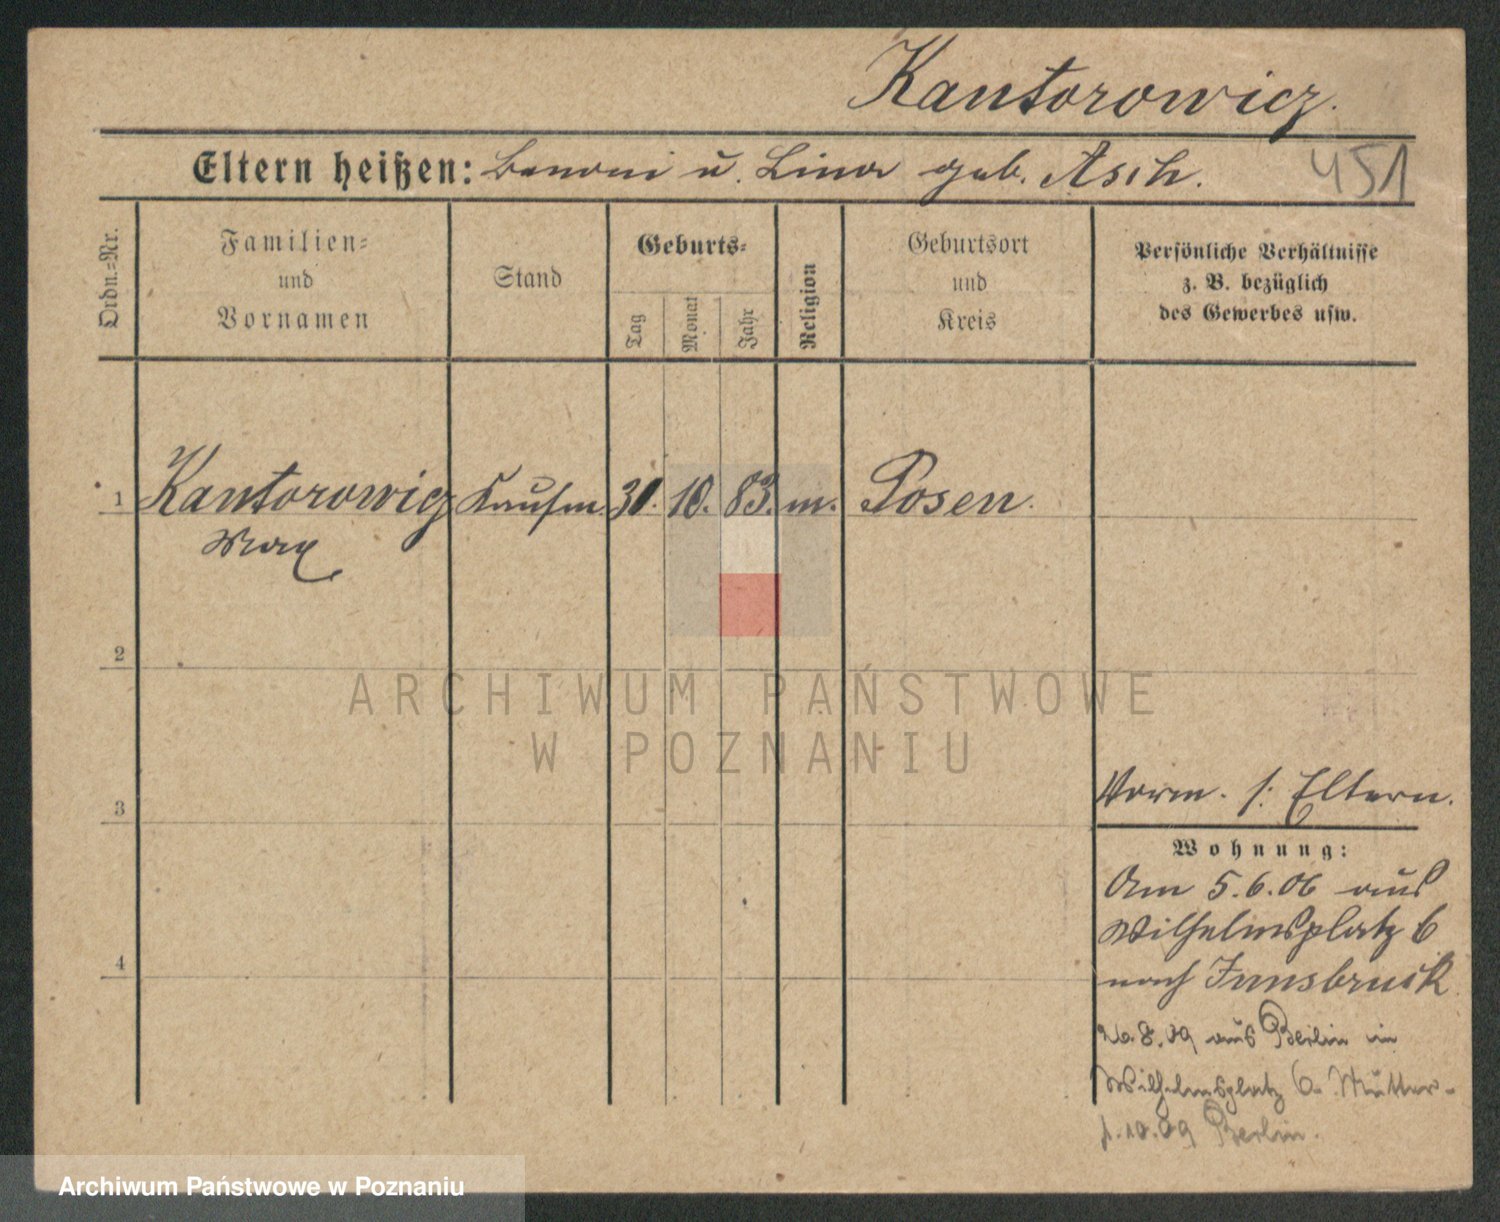 Kantorowicz.
Eltern heißen: Benoni u. Lina geb. Asch.
451
Ordn.=Nr.
Familien=
und
Vornamen
Stand
Geburts=
Tag
Monat
Jahr
Religion
Geburtsort
und
Kreis
Persönliche Verhältnisse
z. B. bezüglich
des Gewerbes usw.
1 Kantorowicz Kaufm. 30. 10. 83. m. Posen.
Max
2
ARCHIWUM PAŃSTWOWE
W POZNANIU
3
Vorm. s: Eltern.
Wohnung:
Am 5.6.06 aus
Wilhelmsplatz 6
4
nach Innsbruck
26.8.09 aus Berlin in
Wilhelmsplatz 6. Mutter.
1.10.09 Berlin.
Archiwum Państwowe w Poznaniu